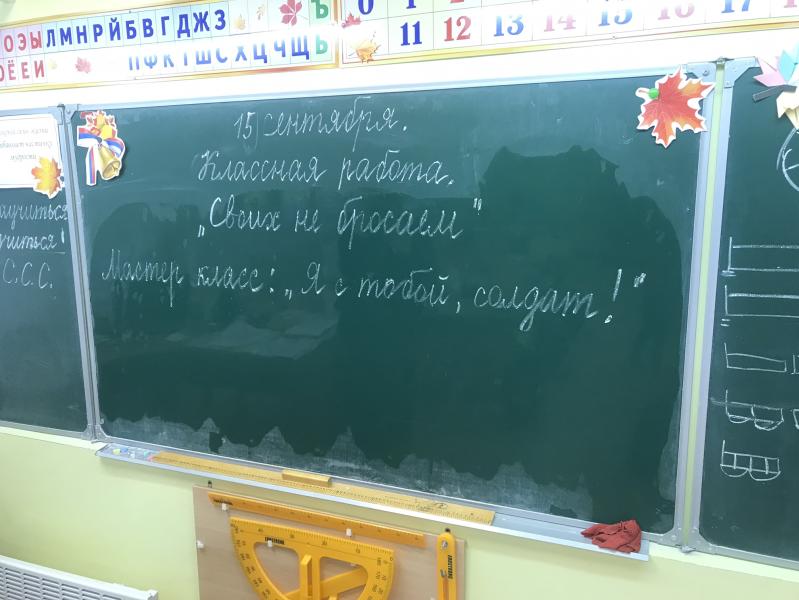 ОЭЫЛМНРЙБВГДЖЗ Ъ
ОЁЕИ ПФКТШСХЦЧЩЬ
0 1
11 12 13 14 15 16 17
15 сентября.
Классная работа.
„Своих не бросаем"
Мастер класс: „Я с тобой, солдат!"
учиться
учиться!
С.С.С.